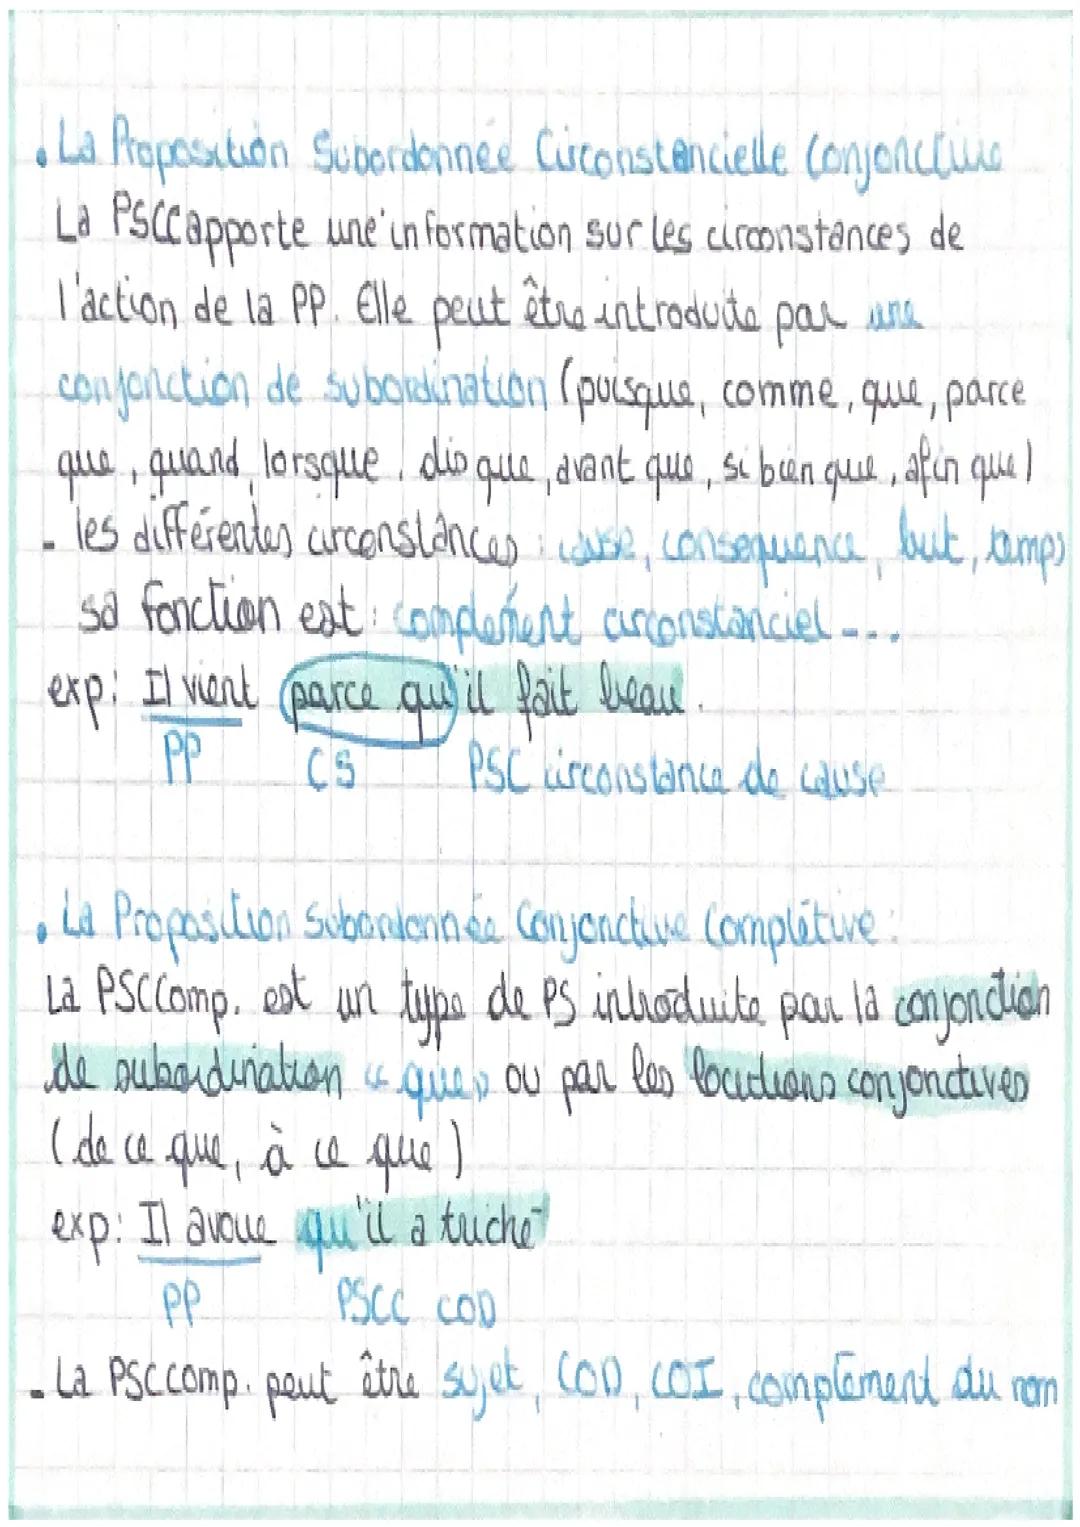 . La Proposition Subordonnée Circonstancielle Conjonctive
La PSCC apporte une information sur les circonstances de
l'action de la PP. Elle peut être introduite par une
conjonction de subordination (puisque, comme, que, parce
que, quand, lorsque, dès que, avant que, si bien que, afin que)
- les différentes circonstances : cause, conséquence, but, temps
sa fonction est : complément circonstanciel ----
exp: Il vient parce qu'il fait beau.
PP CS PSC circonstance de cause
. La Proposition Subordonnée Conjonctive Complétive :
La PSCComp. est un type de PS introduite par la conjonction
de subordination « que » ou par les locutions conjonctives
(de ce que, à ce que)
exp: Il avoue qu'il a triché
PP PSCC COD
- La PSCComp. peut être sujet, COD, COI, complément du nom